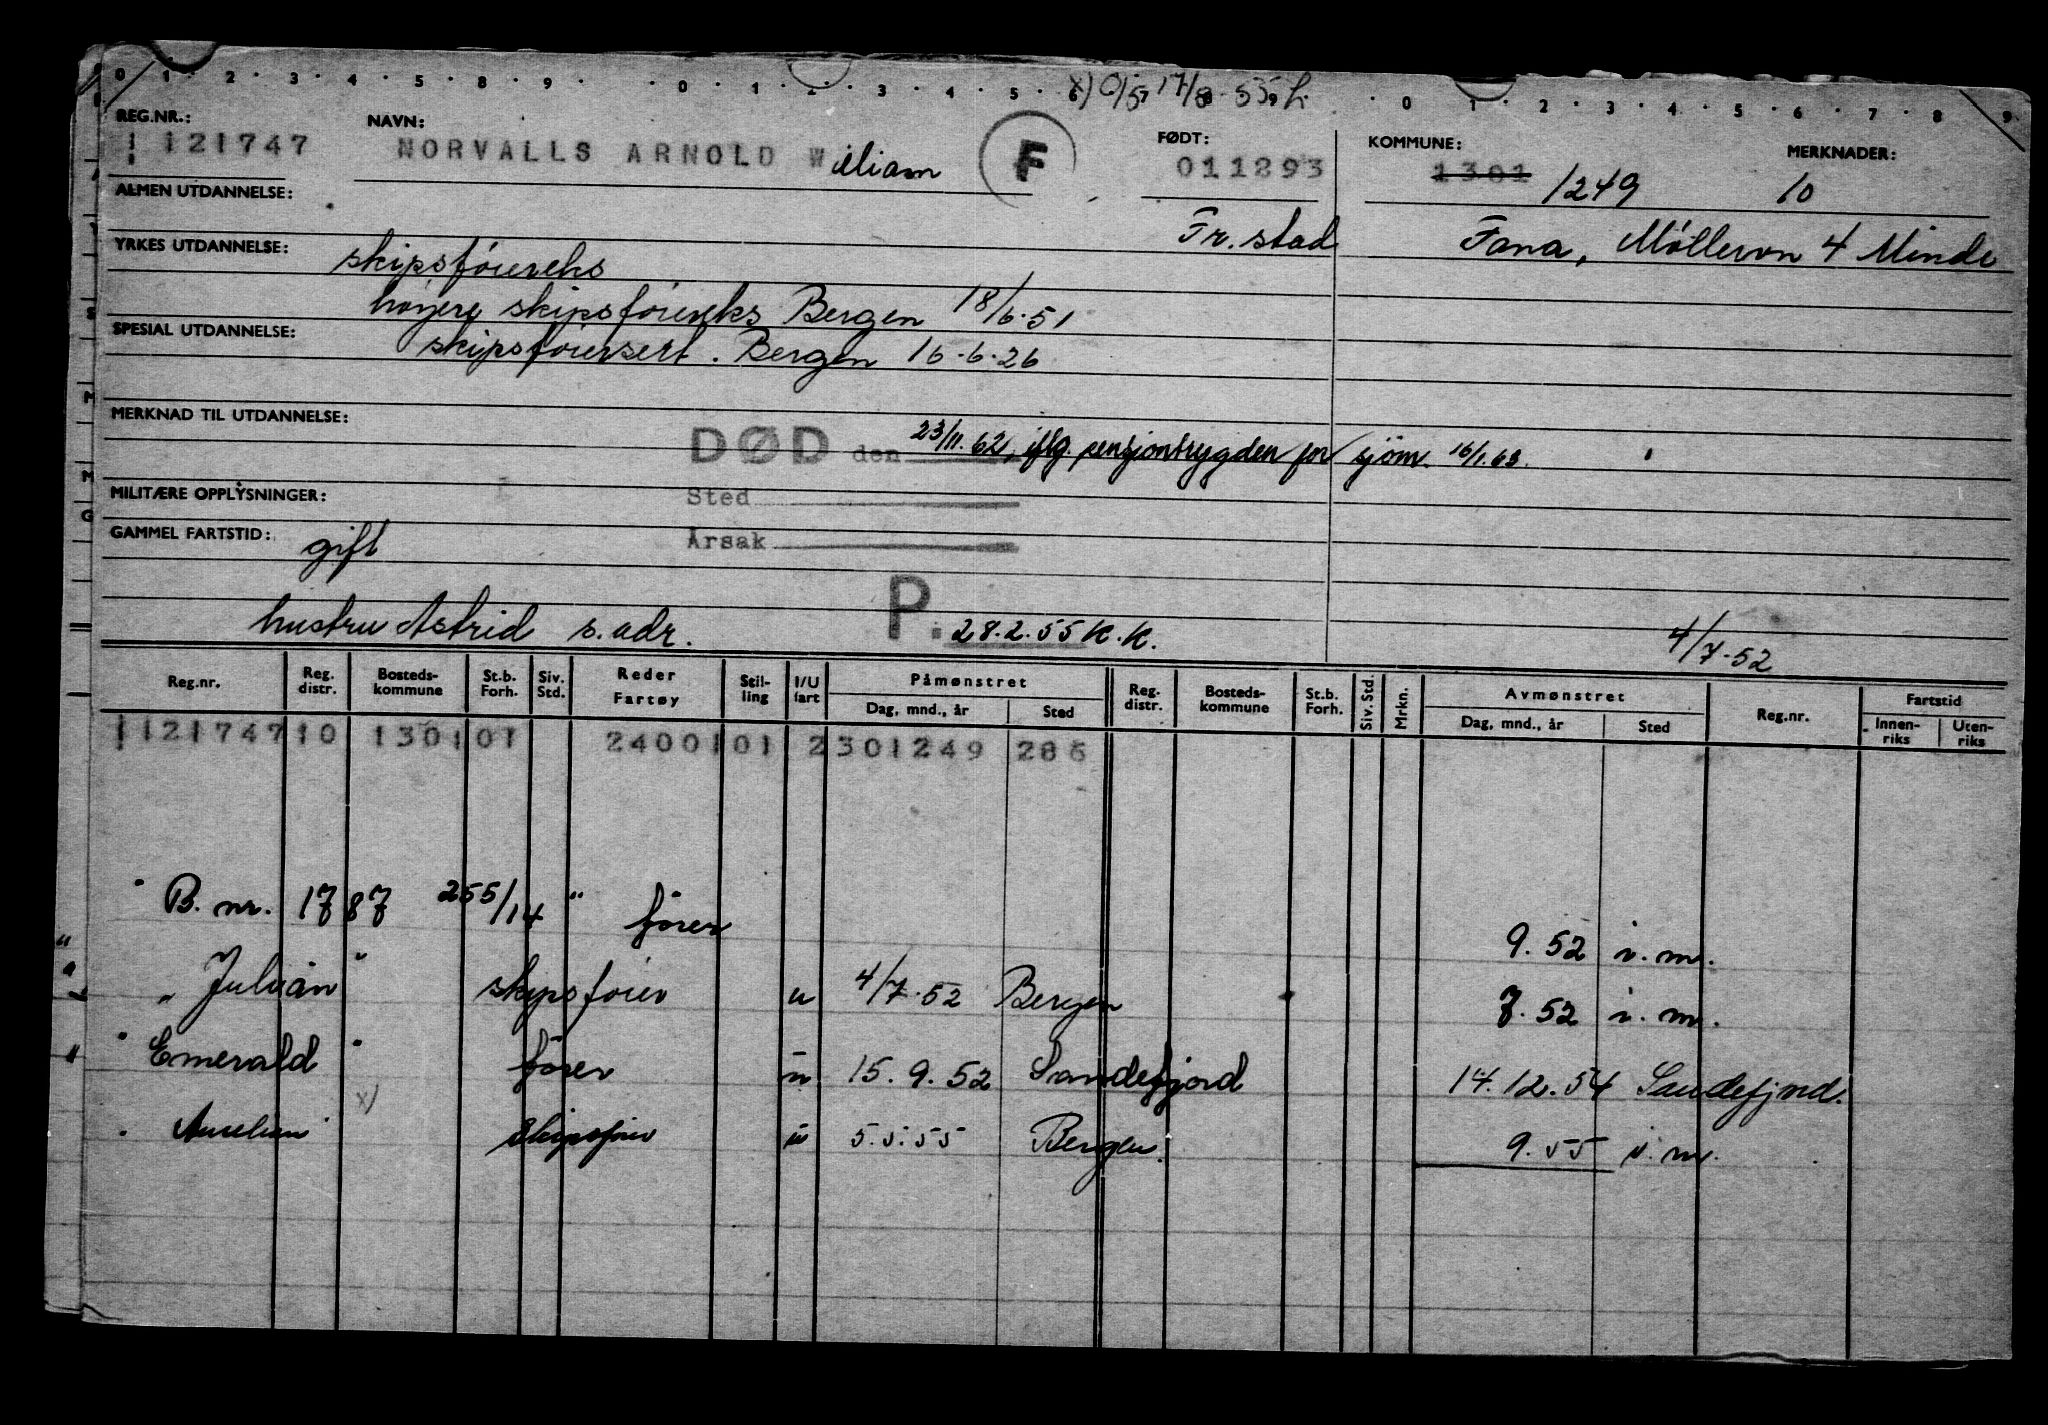 0 · 1 · 2 · 3 · 4 · 5 · 8 · 9 · · 0 · 1 · 2 · 3 · 4 · 5 · 6 · 0 · 1 · 2 · 3 · 5 · 6 · 7 · 8 · 9
x) 17/8 55
REG.NR.: NAVN: FØDT: KOMMUNE: MERKNADER:
121747 NORVALLS ARNOLD William F 011293 1301 1249 10
ALMEN UTDANNELSE:
Fr.stad Fana, Møllervn 4 Minde
YRKES UTDANNELSE: skipsføiereks
høyere skipsføiereks Bergen 18/6.51
SPESIAL UTDANNELSE: skipsføiersert. Bergen 16.6.26
MERKNAD TIL UTDANNELSE:
DØD den 23/11.62, iflg. pensjontrygden for sjøm. 16/1.63.
MILITÆRE OPPLYSNINGER: Sted
GAMMEL FARTSTID: gift Årsak
hustru Astrid s. adr. P. 28.2.55 K.K. 4/7.52
Reg.nr. Reg. distr. Bosteds-kommune St.b. Forh. Siv. Std. Reder Fartøy Stil-ling I/U fart Påmønstret Dag, mnd., år Sted Reg. distr. Bosteds-kommune St.b. Forh. Siv. Std. Mrkn. Avmønstret Dag, mnd., år Sted Reg.nr. Fartstid Innen-riks Uten-riks
112174710 130101 2400101 2301249 286
" B. nr. 1787 255/14 " fører 9.52 i.m.
" Julian " skipsføier u 4/7.52 Bergen 7.52 i.m.
" Emerald " fører u 15.9.52 Sandefjord 14.12.54 Sandefjord.
x)
Aurelian skipsføier u 5.5.55 Bergen. 9.55 i.m.